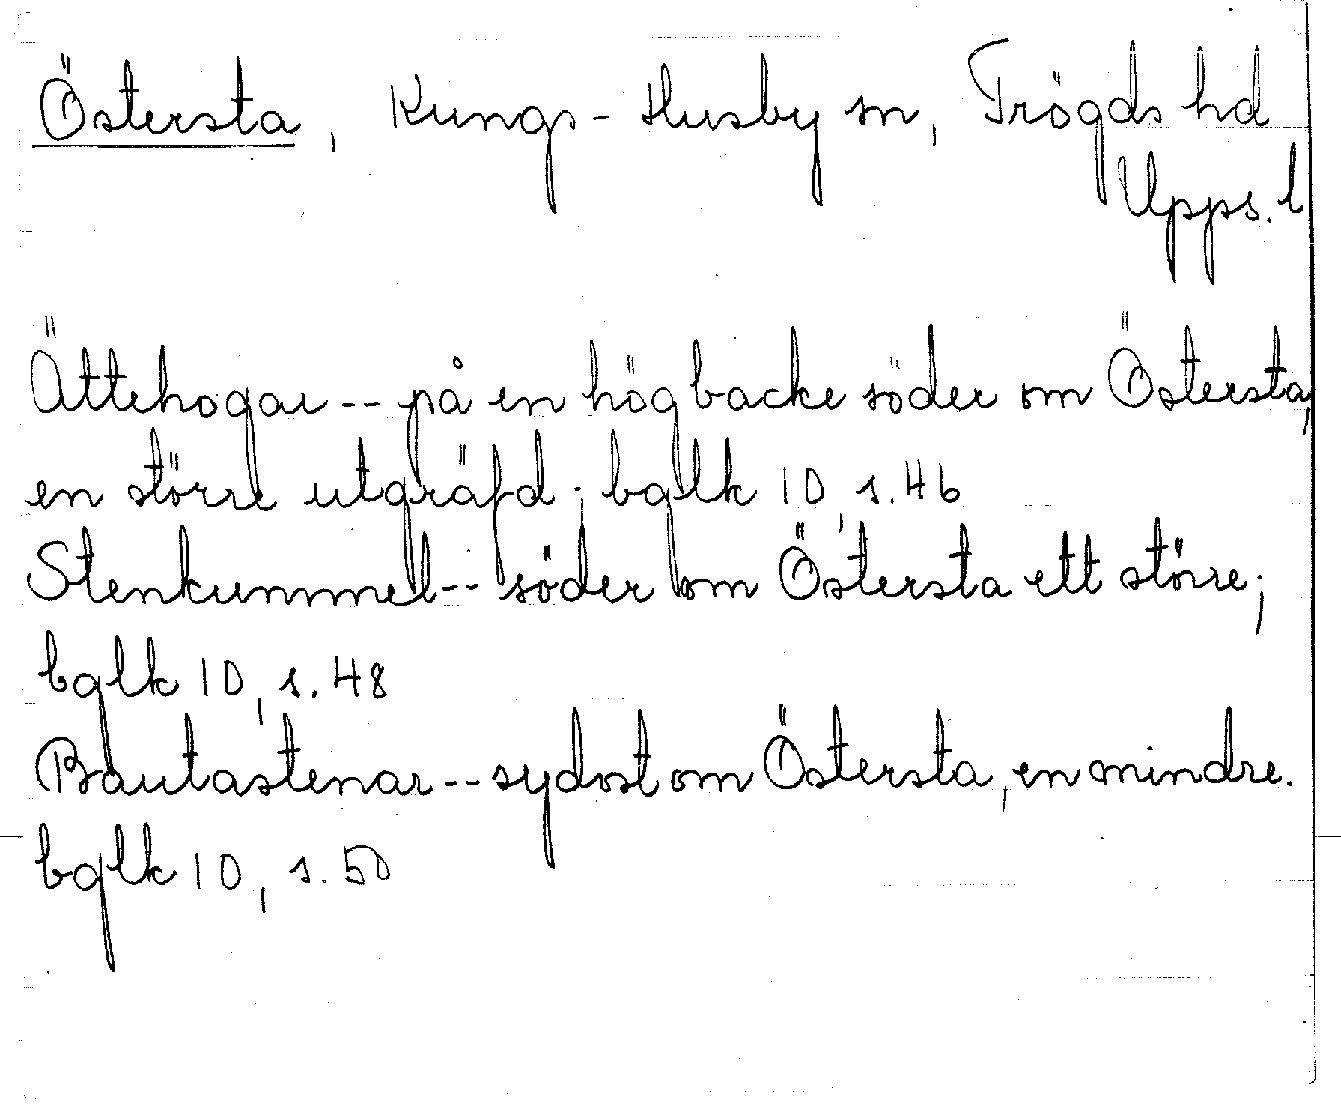 Östersta, Kungs-Husby sn, Trögds hd
Upps. l
Ättehogar -- på en hög backe söder om Östersta,
en större utgräfd; bglk 10, s. 46
Stenkummel -- söder om Östersta ett större;
bglk 10, s. 48
Bautastenar -- sydost om Östersta, en mindre.
bglk 10, s. 50